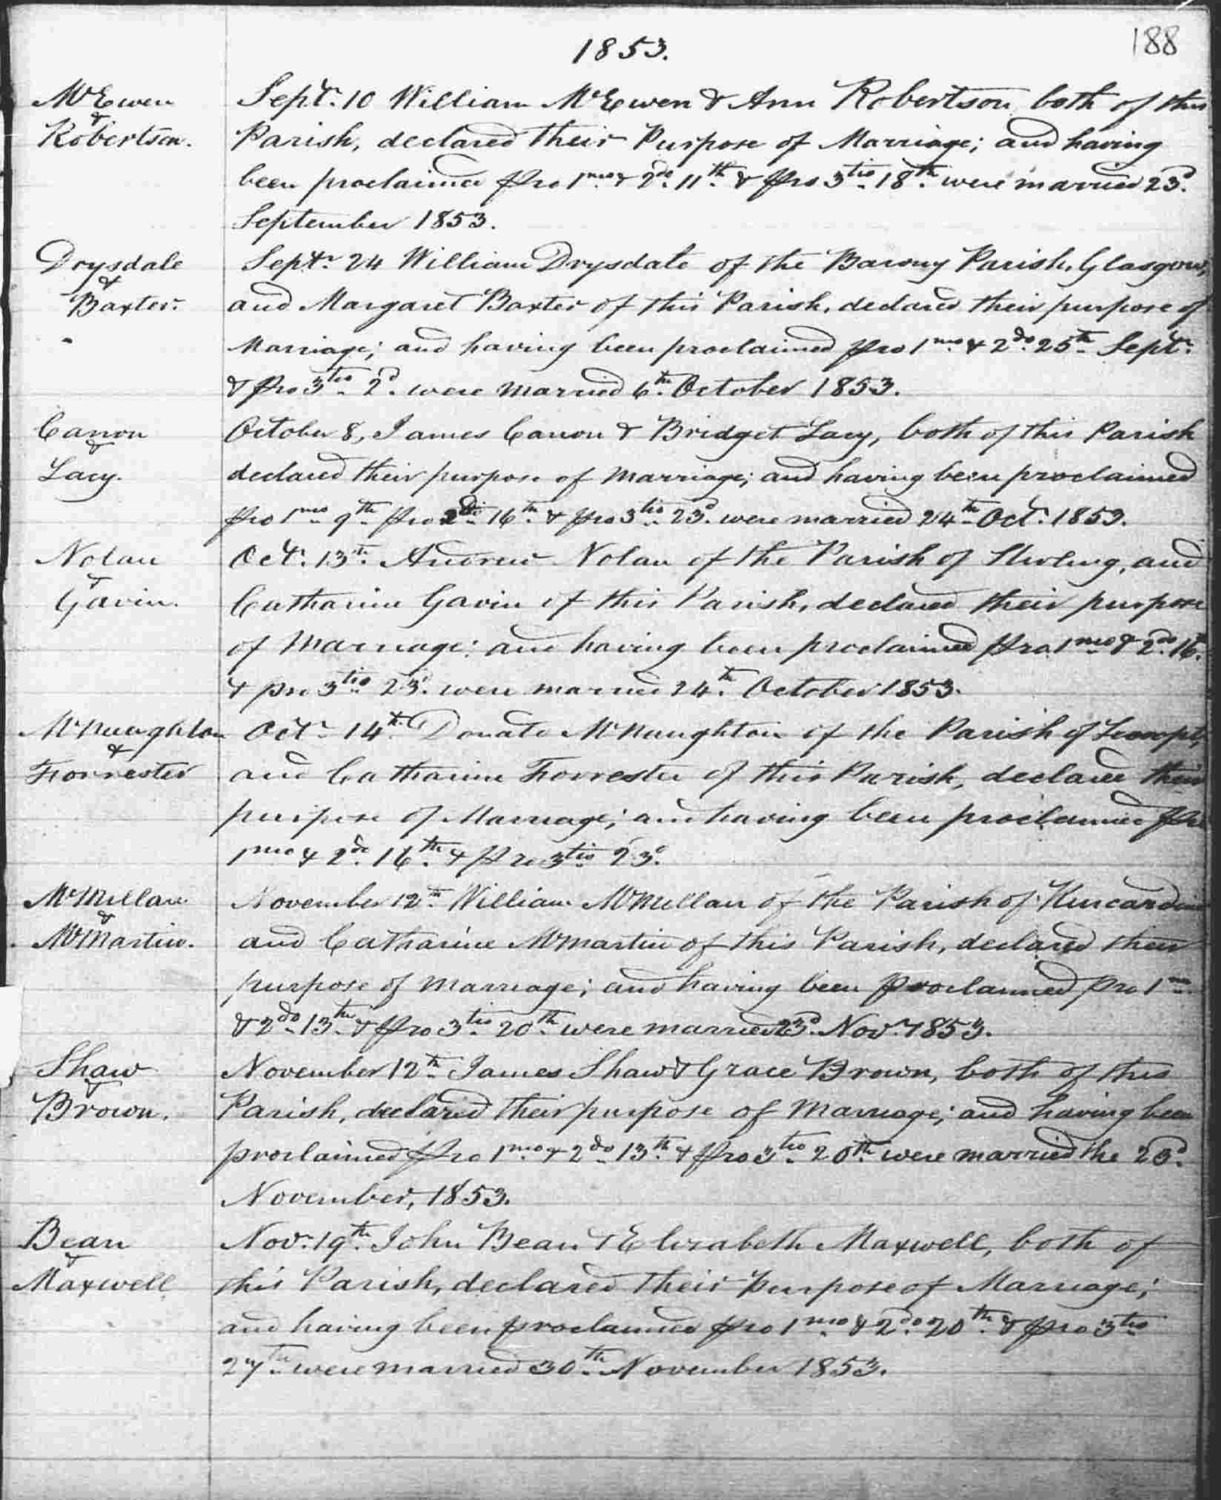 188
1853.
McEwen
&
Robertson.
Septr. 10 William McEwen & Ann Robertson both of this
Parish, declared their Purpose of Marriage; and having
been proclaimed pro 1mo & 2do 11th & pro 3tio 18th were married 23d.
September 1853.
Drysdale
&
Baxter.
Septr. 24 William Drysdale of the Barony Parish, Glasgow,
and Margaret Baxter of this Parish, declared their purpose of
Marriage; and having been proclaimed pro 1mo & 2do 25th Septr.
& pro 3tio 2d. were married 6th October 1853.
Canon
&
Lacy.
October 8, James Canon & Bridget Lacy, both of this Parish
declared their purpose of Marriage; and having been proclaimed
pro 1mo 9th pro 2do 16th & pro 3tio 23d. were married 24th Oct. 1853.
Nolan
&
Gavin.
Oct. 13th Andrew Nolan of the Parish of Stirling, and
Catharine Gavin of this Parish, declared their purpose
of Marriage; and having been proclaimed pro 1mo & 2do 16th
& pro 3tio 23d. were married 24th October 1853.
McNaughton
&
Forrester
Octr. 14th Donald McNaughton of the Parish of Lecropt,
and Catharine Forrester of this Parish, declared their
purpose of Marriage; and having been proclaimed pro
1mo & 2do 16th & pro 3tio 23d.
McMillan
&
McMartin.
November 12th William McMillan of the Parish of Kincardine
and Catharine McMartin of this Parish, declared their
purpose of Marriage; and having been proclaimed pro 1mo
& 2do 13th & pro 3tio 20th were married 23d. Novr. 1853.
Shaw
&
Brown.
November 12th James Shaw & Grace Brown, both of this
Parish, declared their purpose of Marriage; and having been
proclaimed pro 1mo & 2do 13th & pro 3tio 20th were married the 23d.
November, 1853.
Bean
&
Maxwell
Nov. 19th John Bean & Elizabeth Maxwell, both of
this Parish, declared their Purpose of Marriage;
and having been proclaimed pro 1mo & 2do 20th & pro 3tio
27th were married 30th November 1853.